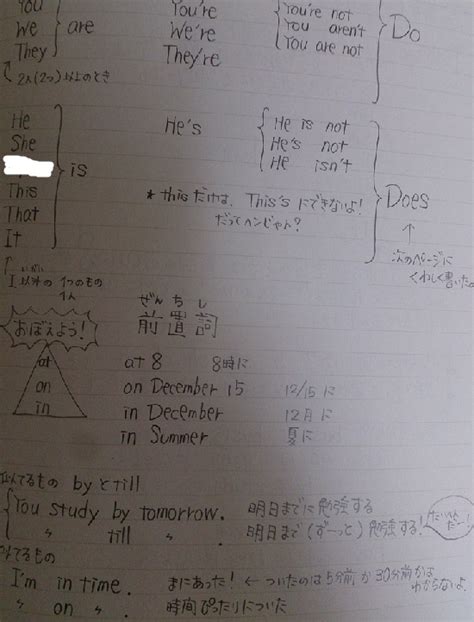 You
We
They
are
You're
We're
They're
You're not
You aren't
You are not
Do
2人(2つ)以上のとき
He
She
This
That
It
is
He's
He is not
He's not
He isn't
Does
*thisだけは、This'sにできないよ!
だってヘンじゃん?
次のページに
くわしく書いたよ
いがい
I以外の1つのもの
1人
おぼえよう!
at
on
in
ぜんちし
前置詞
at 8 8時に
on December 15 12/15に
in December 12月に
in Summer 夏に
似てるもの byとtill
You study by tomorrow. 明日までに勉強する
〃 till 〃 . 明日まで(ずーっと)勉強する!
たいへんだー!
似てるもの
I'm in time. まにあった! ← ついたのは5分前か30分前かは
わからないよ
〃 on 〃 . 時間ぴったりについた